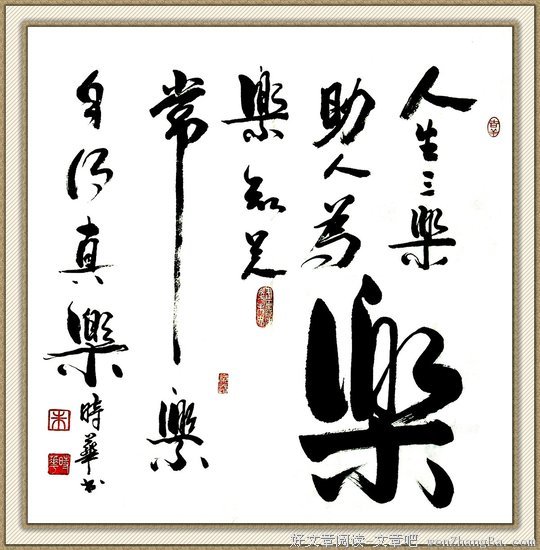 人生三樂
助人為樂
樂知足
常樂
自得真樂
時華書
朱
好文章阅读-文章吧 wenZhangBa.com